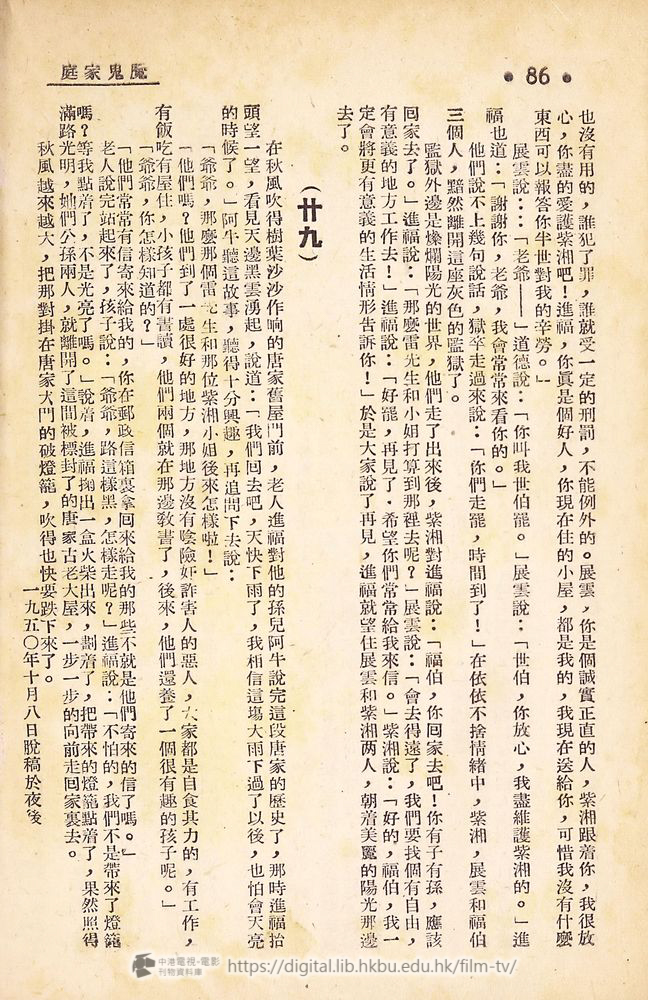 魔鬼家庭
• 86 •
也沒有用的，誰犯了罪，誰就受一定的刑罰，不能例外的。展雲，你是個誠實正直的人，紫湘跟着你，我很放
心，你盡的愛護紫湘吧！進福，你眞是個好人，你現在住的小屋，都是我的，我現在送給你，可惜我沒有什麼
東西可以報答你半世對我的辛勞。」
展雲說：「老爺——」道德說：「你叫我世伯罷。」展雲說：「世伯，你放心，我盡維護紫湘的。」進
福也道：「謝謝你，老爺，我會常常來看你的。」
他們說不上幾句說話，獄卒走過來說：「你們走罷，時間到了！」在依依不捨情緒中，紫湘，展雲和福伯
三個人，黯然離開這座灰色的監獄了。
監獄外邊是燦爛陽光的世界，他們走了出來後，紫湘對進福說：「福伯，你囘家去吧！你有子有孫，應該
囘家去了。」進福說：「那麼雷先生和小姐打算到那裡去呢？」展雲說：「會去得遠了，我們要找個有自由，
有意義的地方工作去！」進福說：「好罷，再見了．希望你們常常給我來信。」紫湘說：「好的，福伯，我一
定會將更有意義的生活情形告訴你！」於是大家說了再見，進福就望住展雲和紫湘两人，朝着美麗的陽光那邊
去了。
（廿九）
在秋風吹得樹葉沙沙作响的唐家舊屋門前，老人進福對他的孫兒阿牛說完這段唐家的歷史了，那時進福抬
頭望一望，看見天邊黑雲湧起，說道：「我們囘去吧，天快下雨了，我相信這塲大雨下過了以後，也怕會天亮
的時候了。」阿牛聽這故事，聽得十分興趣，再追問下去說：
「爺爺，那麼那個雷先生和那位紫湘小姐後來怎樣啦！」
「他們嗎？他們到了一處很好的地方，那地方沒有陰險奸詐害人的惡人，大家都是自食其力的，有工作，
有飯吃有屋住，小孩子都有書讀，他們兩個就在那邊敎書了，後來，他們還養了一個很有趣的孩子呢。」
「爺爺，你怎樣知道的？」
「他們常常有信寄來給我的，你在郵政信箱裏拿囘來給我的那些不就是他們寄來的信了嗎。」
老人說完站起來了，孩子說：「爺爺，路這樣黑，怎樣走呢？」進福說：「不怕的，我們不是帶來了燈籠
嗎？等我點着了，不是光亮了嗎。」說着，進福掏出一盒火柴出來，劃着了，把帶來的燈籠點着了，果然照得
滿路光明，她們公孫兩人，就離開了這間被標封了的唐家古老大屋，一步一步的向前走囘家裏去。
秋風越來越大，把那對掛在唐家大門的破燈籠，吹得也快要跌下來了。
一九五〇年十月八日脫稿於夜後
中港電視-電影
刊物資料庫
https://digital.lib.hkbu.edu.hk/film-tv/